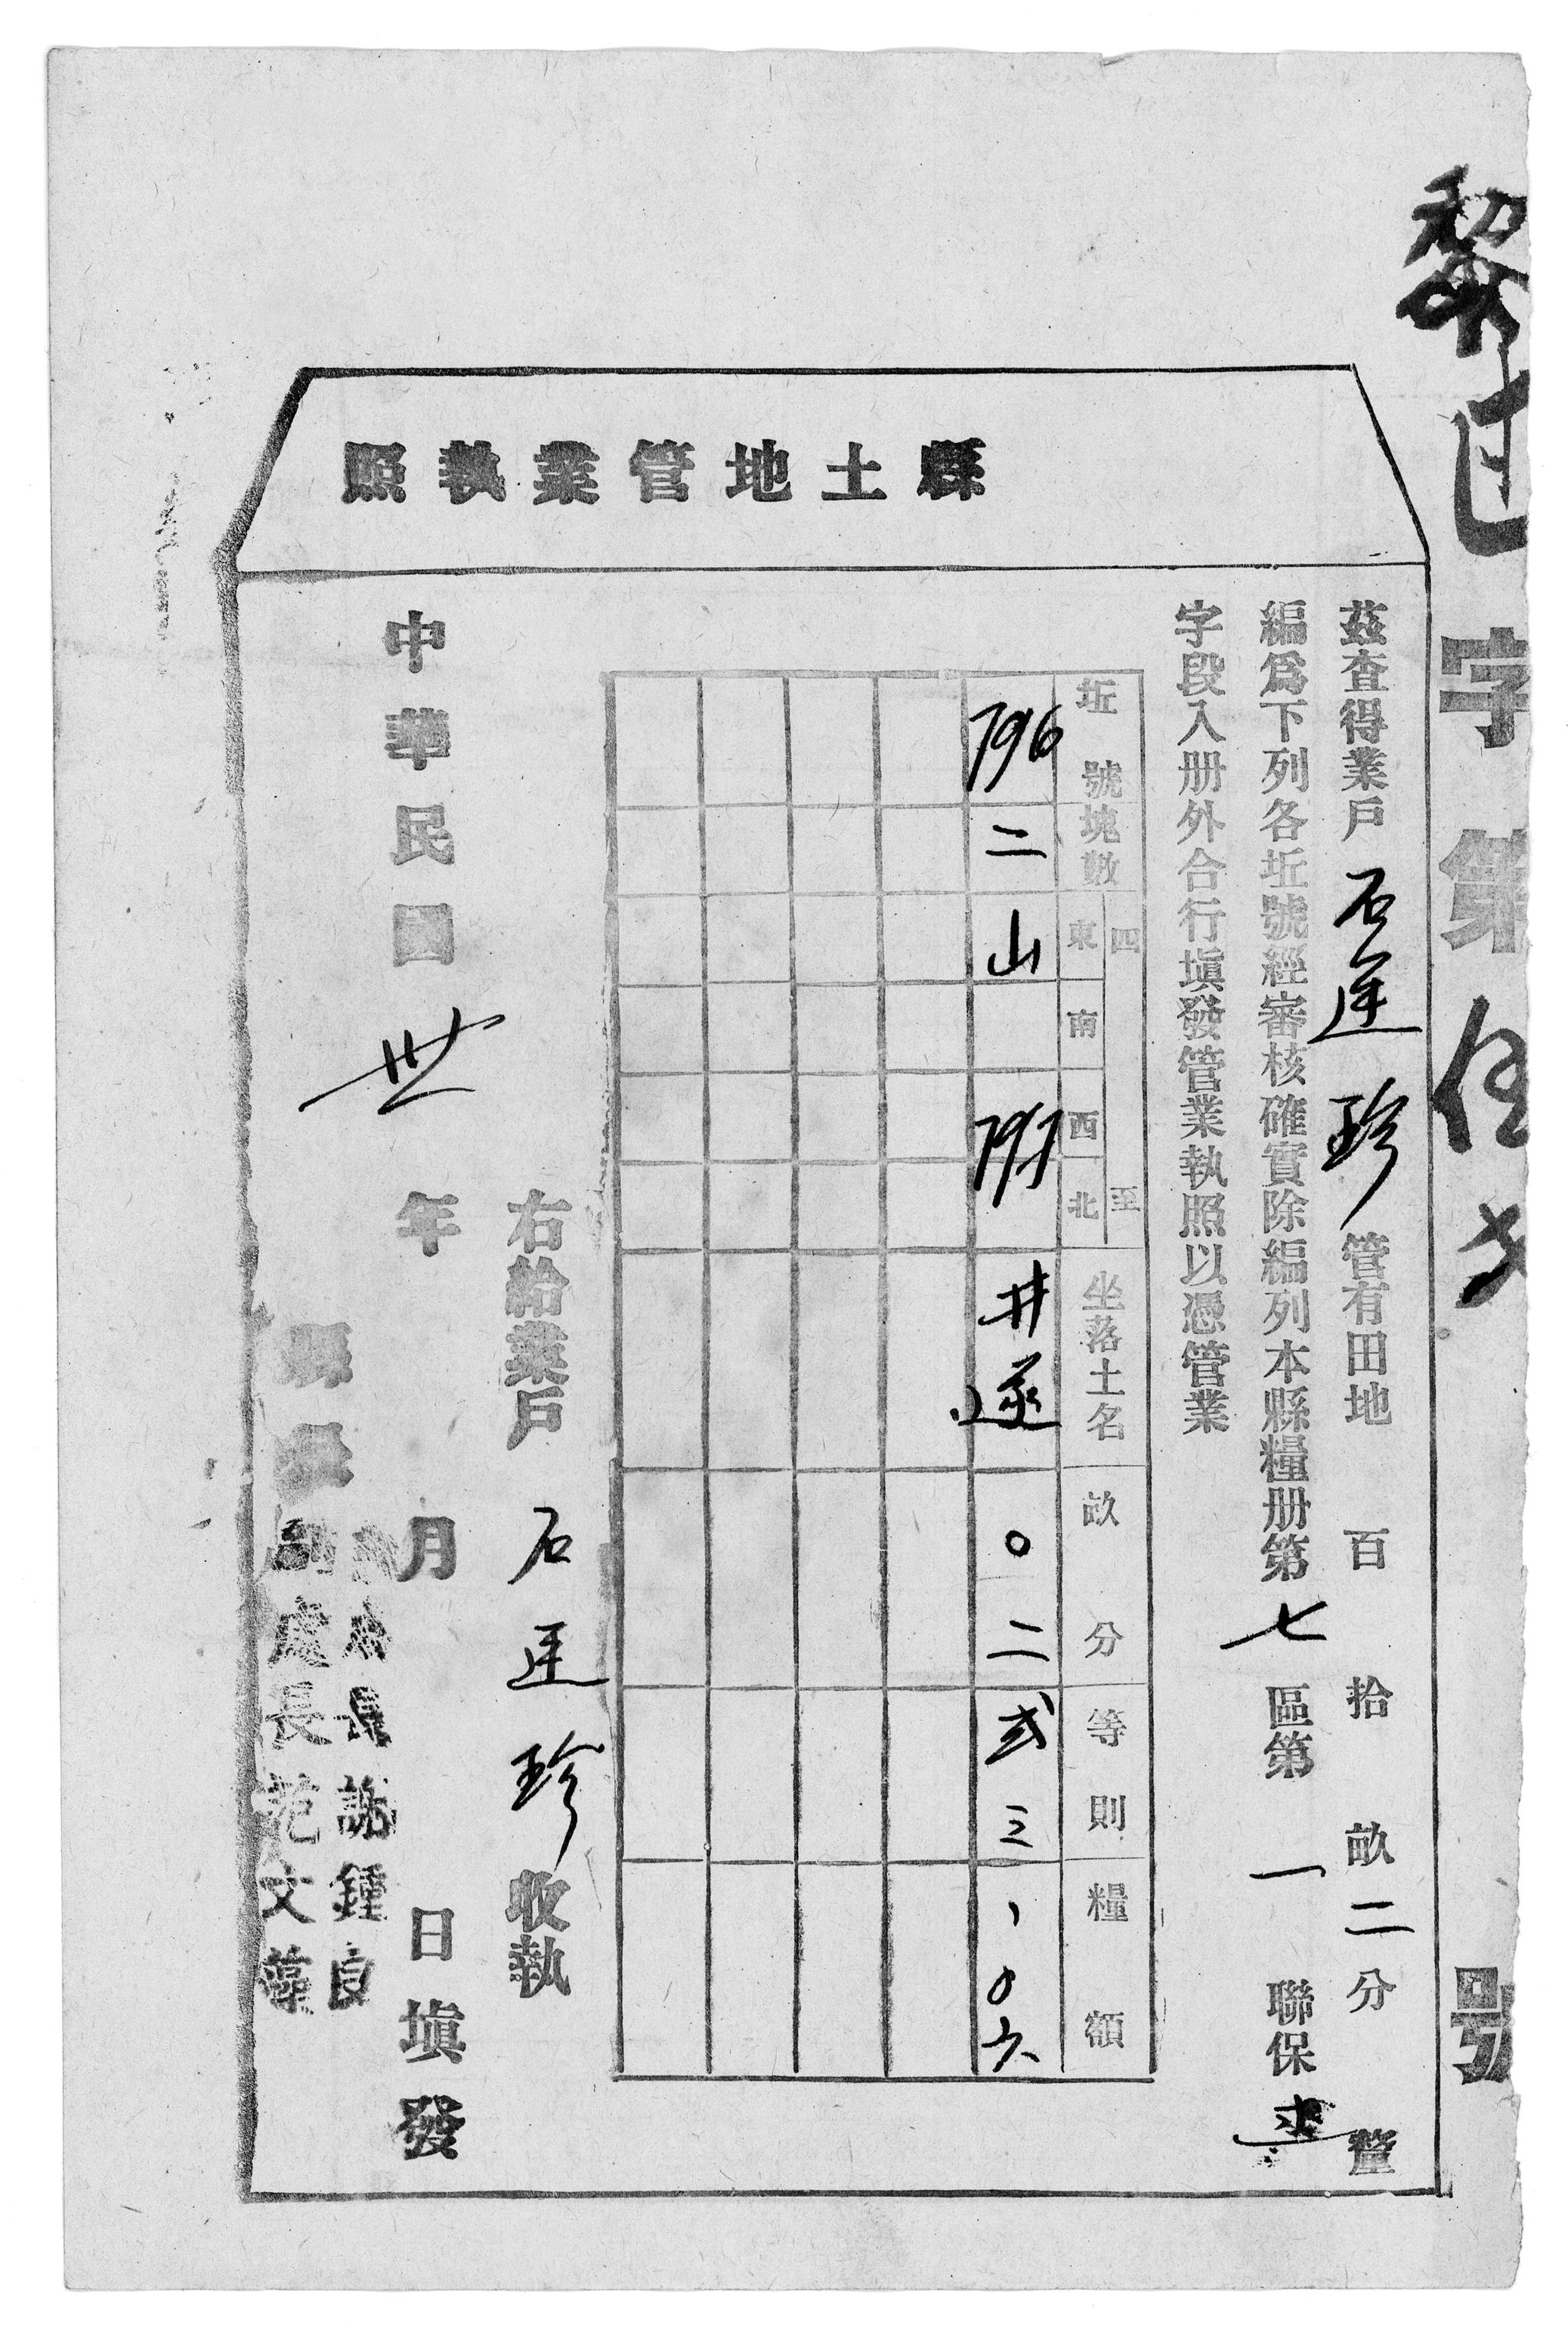 縣土地管業執照
字第
號
茲查得業戶石廷珍管有田地 百 拾 畝二分 釐
編爲下列各坵號經審核確實除編列本縣糧册第七區第一聯保
字段入册外合行塡發管業執照以憑管業
坵號 塊數 四至 東 南 西 北 坐落土名 畝分 等則 糧額
796 二 山 井 〇二 弍三 、〇六
右給業戶石廷珍收執
中華民國卅 年 月 日塡發
長謝鍾良
縣長 處長范文藻